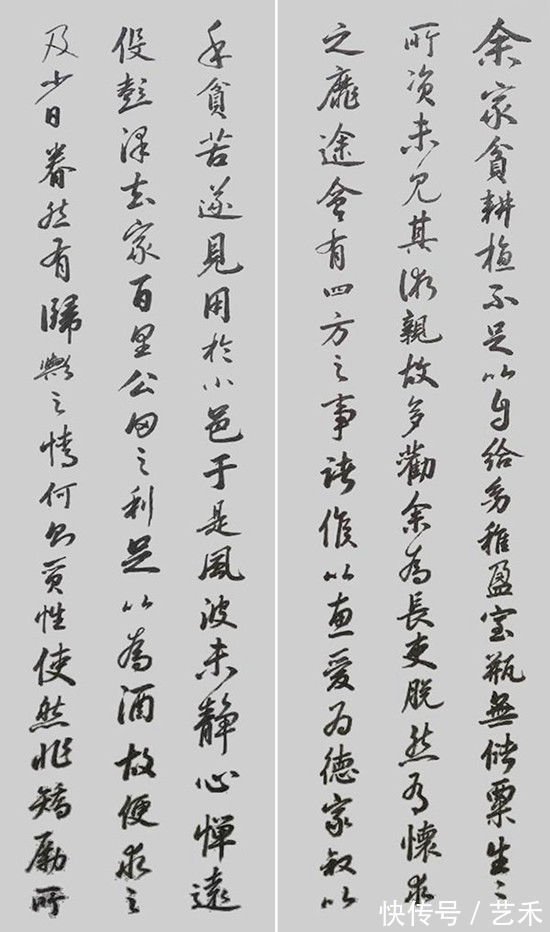 余家貧耕植不足以自給幼稚盈室瓶無儲粟生々
所資未見其術親故多勸余為長吏脫然有懷求
之靡途會有四方之事諸侯以惠愛為德家叔以
余貧苦遂見用於小邑于是風波未靜心憚遠
役彭澤去家百里公田之利足以為酒故便求之
及少日眷然有歸歟之情何則質性使然非矯勵所
快传号 / 艺禾